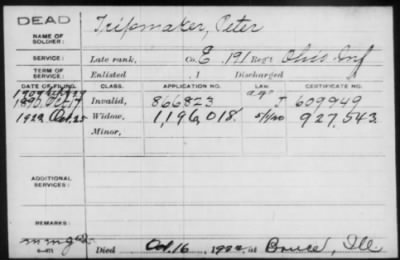 DEAD
NAME OF SOLDIER: Tripmaker, Peter
SERVICE: Late rank, Co. E, 191 Reg't Ohio Inf
TERM OF SERVICE: Enlisted , 1 Discharged
DATE OF FILING. CLASS. APPLICATION NO. LAW. CERTIFICATE NO.
1890 Oct 17 Invalid, 866823 J 609949
1922 Oct 25 Widow, 1,196,018. 5/1/20 927,543.
Minor,
ADDITIONAL SERVICES:
REMARKS:
Died Oct. 16 1922 at Ill.